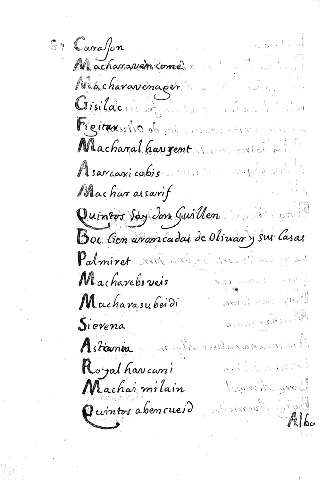 Carason
Macharavencomê
Macharavenager
Gisilac
Figitar
Macharalhaugent
Asarcaricobis
Macharassarif
Quintos Soy don Guillen
Boc Cien arancadas de Olivar y sus casas
Palmiret
Macharebsveis
Macharasubeidi
Sierena
Astiania
Royal haucami
Machar milain
Quintos abencueid
Albo